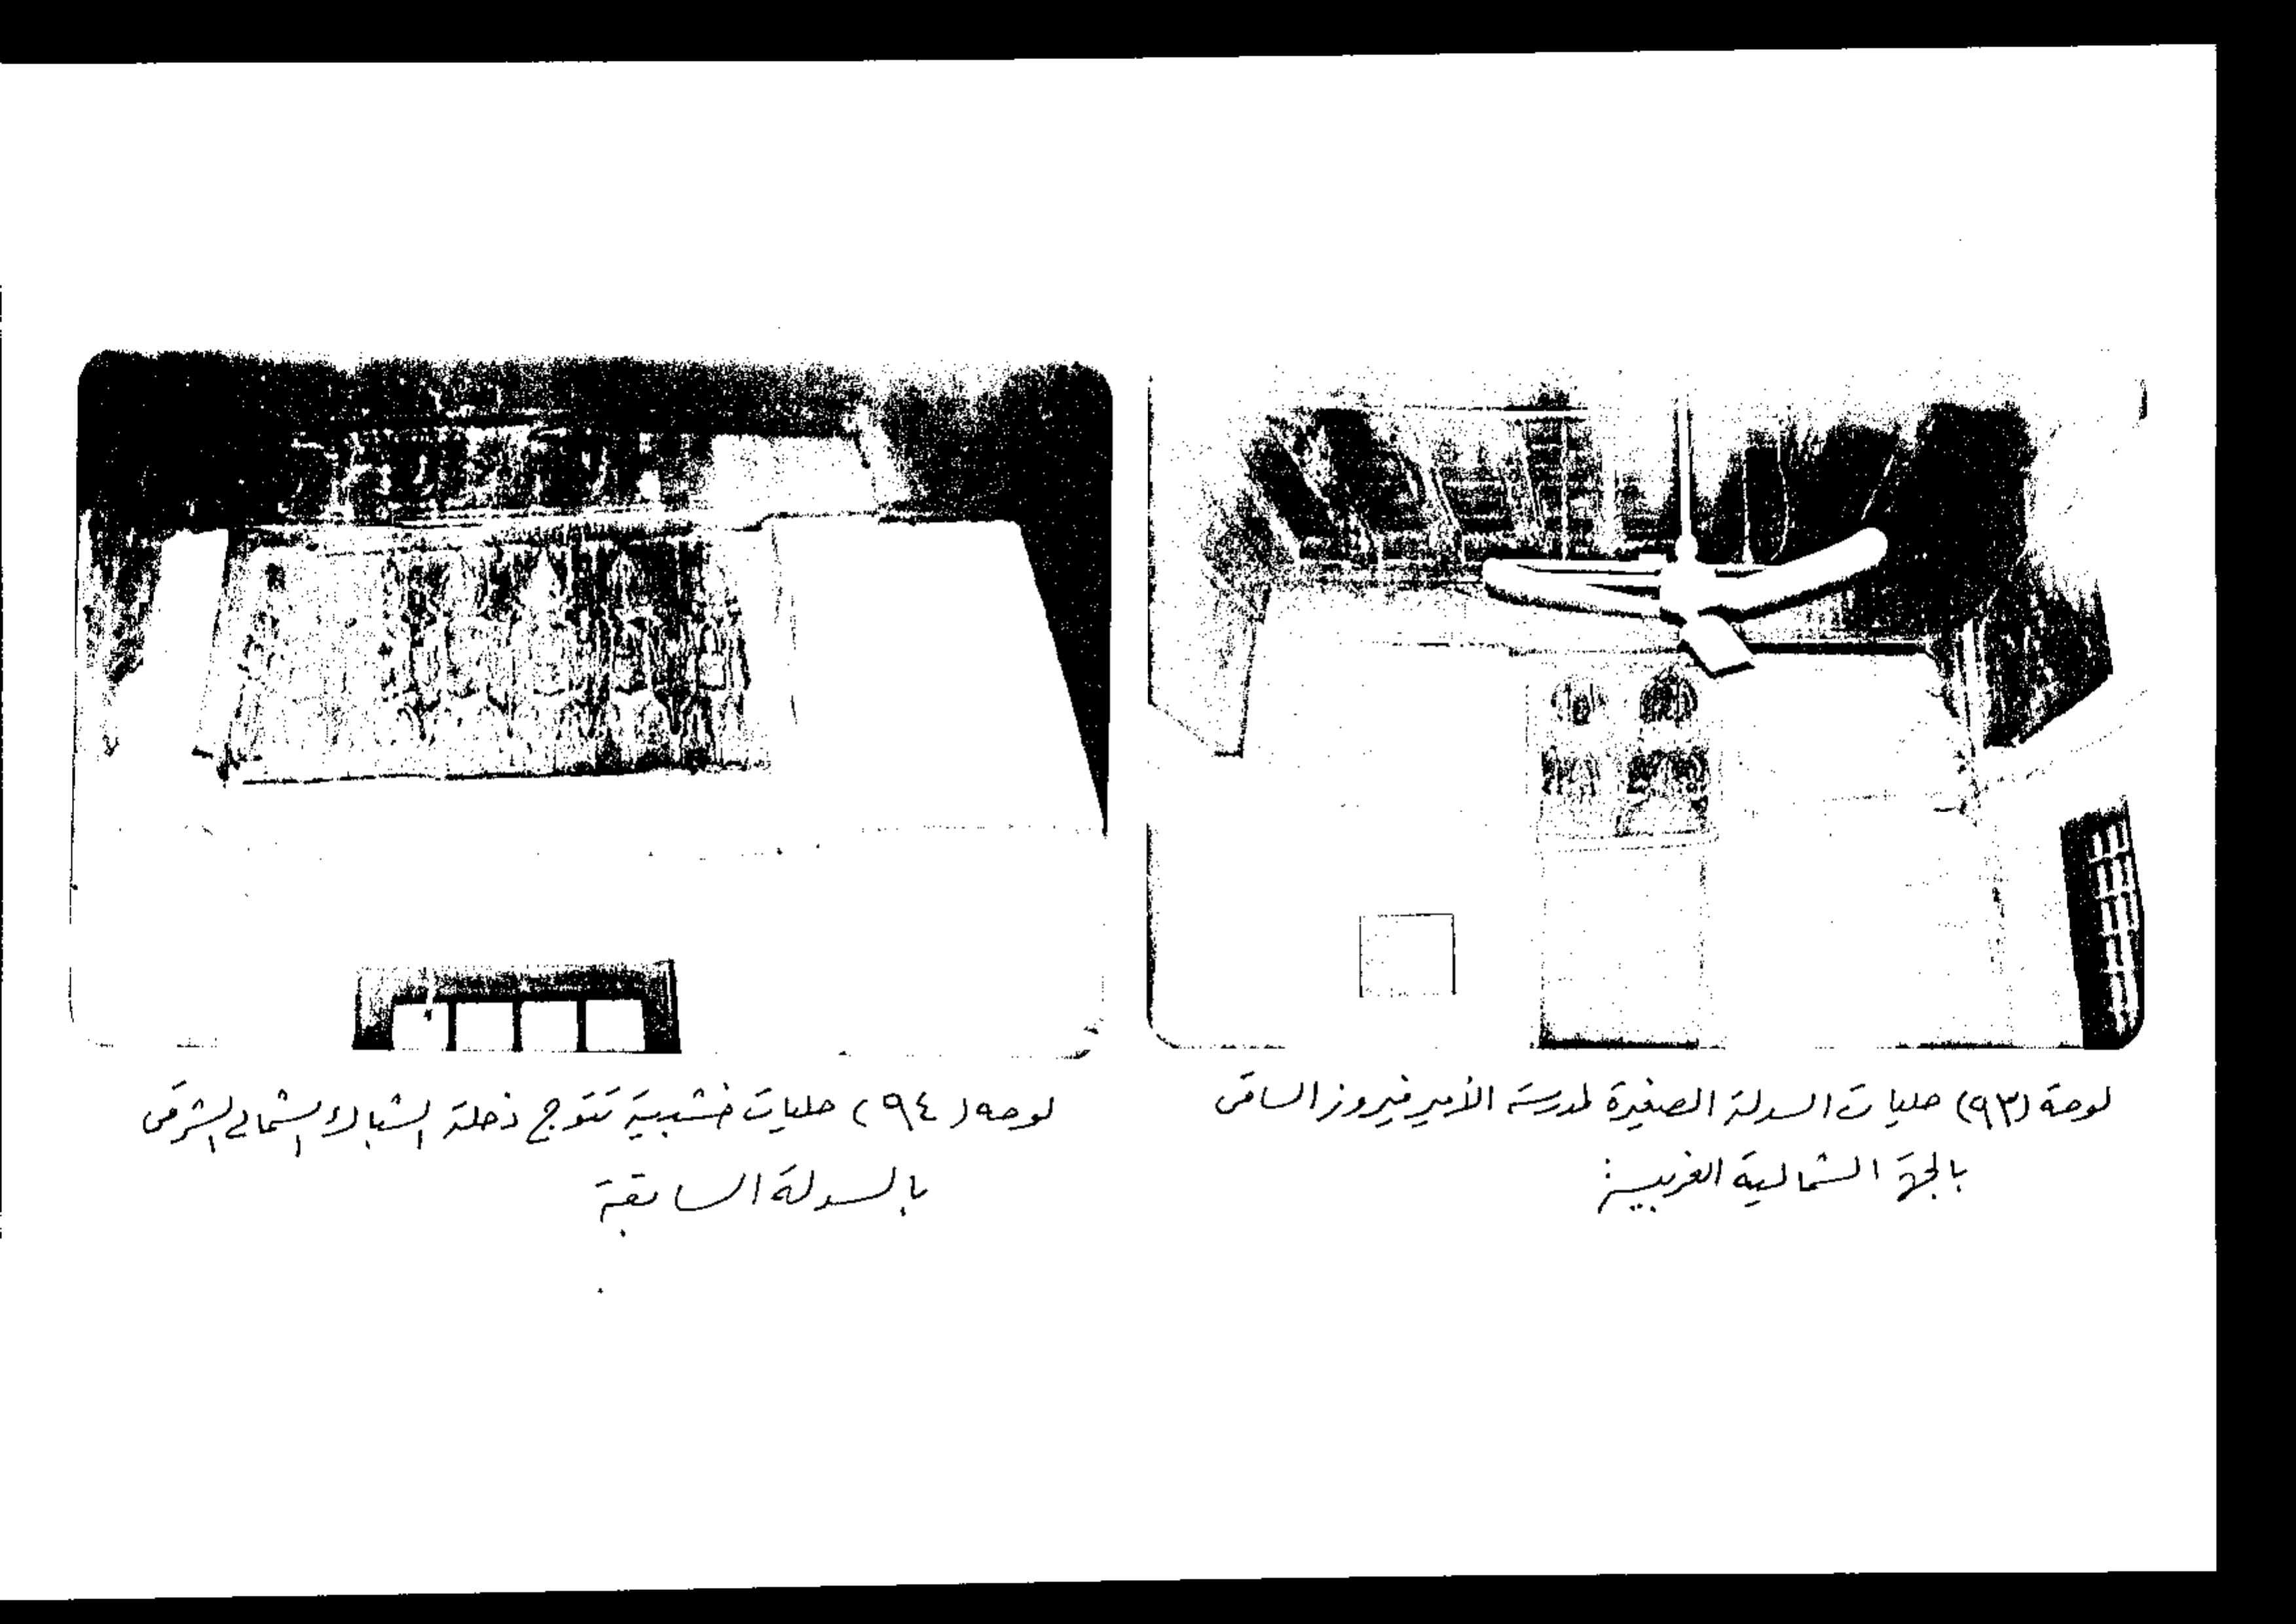 لوحة (٩٣) حليات السدلة الصغيرة لمدرسة الأمير فيروز الساقى
بالجهة الشمالية الغربية
لوحه (٩٤) حليات خشبية تتوج دخلة الشباك الشمالى الشرقى
بالسدلة السابقة